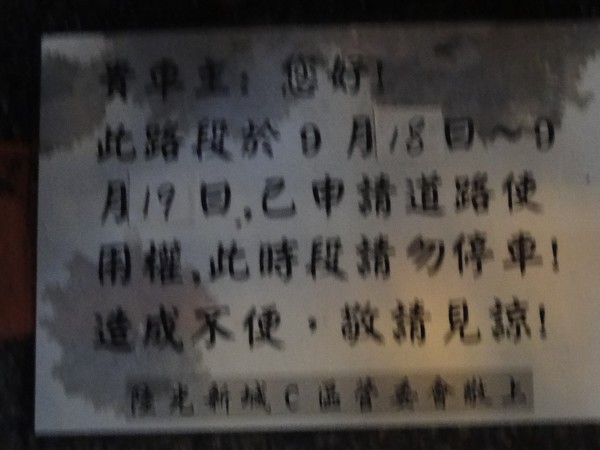 貴車主：您好！
此路段於 9 月18日～9
月19 日,已申請道路使
用權,此時段請勿停車!
造成不便，敬請見諒!
陸光新城C區管委會敬上